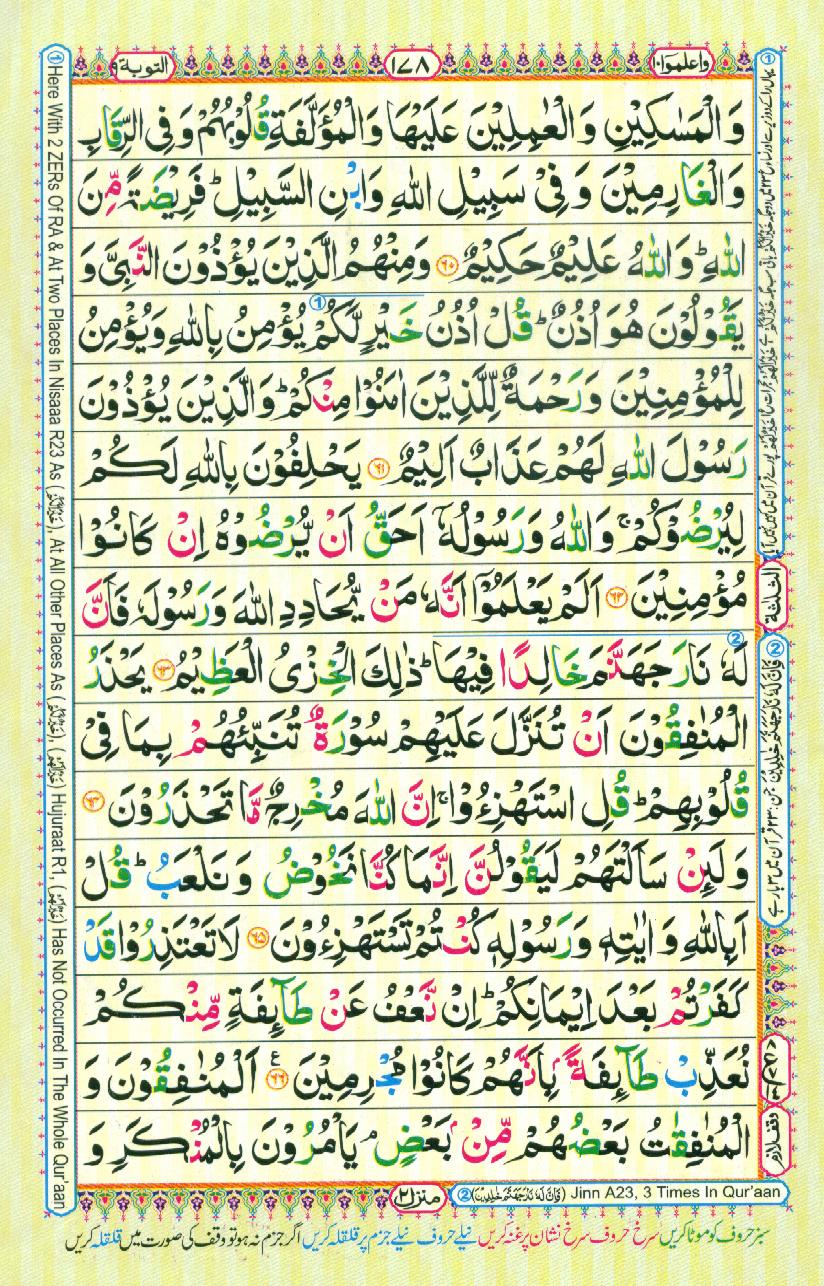 واعلموا ١٠
١٧٨
التوبة ٩
وَالْمَسٰكِيْنِ وَالْعٰمِلِيْنَ عَلَيْهَا وَالْمُؤَلَّفَةِ قُلُوْبُهُمْ وَفِى الرِّقَابِ
وَالْغَارِمِيْنَ وَفِىْ سَبِيْلِ اللّٰهِ وَابْنِ السَّبِيْلِ ؕ فَرِيْضَةً مِّنَ
اللّٰهِ ؕ وَاللّٰهُ عَلِيْمٌ حَكِيْمٌ ۝۶۰ وَمِنْهُمُ الَّذِيْنَ يُؤْذُوْنَ النَّبِىَّ وَ
يَقُوْلُوْنَ هُوَ اُذُنٌ ؕ قُلْ اُذُنُ خَيْرٍ لَّكُمْ يُؤْمِنُ بِاللّٰهِ وَيُؤْمِنُ
لِلْمُؤْمِنِيْنَ وَرَحْمَةٌ لِّلَّذِيْنَ اٰمَنُوْا مِنْكُمْ ؕ وَالَّذِيْنَ يُؤْذُوْنَ
رَسُوْلَ اللّٰهِ لَهُمْ عَذَابٌ اَلِيْمٌ ۝۶۱ يَحْلِفُوْنَ بِاللّٰهِ لَكُمْ
لِيُرْضُوْكُمْ ۚ وَاللّٰهُ وَرَسُوْلُهٗۤ اَحَقُّ اَنْ يُّرْضُوْهُ اِنْ كَانُوْا
مُؤْمِنِيْنَ ۝۶۲ اَلَمْ يَعْلَمُوْۤا اَنَّهٗ مَنْ يُّحَادِدِ اللّٰهَ وَرَسُوْلَهٗ فَاَنَّ
لَهٗ نَارَ جَهَنَّمَ خَالِدًا فِيْهَا ؕ ذٰلِكَ الْخِزْىُ الْعَظِيْمُ ۝۶۳ يَحْذَرُ
الْمُنٰفِقُوْنَ اَنْ تُنَزَّلَ عَلَيْهِمْ سُوْرَةٌ تُنَبِّئُهُمْ بِمَا فِىْ
قُلُوْبِهِمْ ؕ قُلِ اسْتَهْزِءُوْا ۚ اِنَّ اللّٰهَ مُخْرِجٌ مَّا تَحْذَرُوْنَ ۝۶۴
وَلَئِنْ سَاَلْتَهُمْ لَيَقُوْلُنَّ اِنَّمَا كُنَّا نَخُوْضُ وَنَلْعَبُ ؕ قُلْ
اَبِاللّٰهِ وَاٰيٰتِهٖ وَرَسُوْلِهٖ كُنْتُمْ تَسْتَهْزِءُوْنَ ۝۶۵ لَا تَعْتَذِرُوْا قَدْ
كَفَرْتُمْ بَعْدَ اِيْمَانِكُمْ ؕ اِنْ نَّعْفُ عَنْ طَآئِفَةٍ مِّنْكُمْ
نُعَذِّبْ طَآئِفَةًۢ بِاَنَّهُمْ كَانُوْا مُجْرِمِيْنَ ۝۶۶ اَلْمُنٰفِقُوْنَ وَ
الْمُنٰفِقٰتُ بَعْضُهُمْ مِّنْۢ بَعْضٍ ۘ يَاْمُرُوْنَ بِالْمُنْكَرِ وَ
الثلثة
وقف لازم
① Here With 2 ZERs Of RA & At Two Places In Nisaaa R23 As (خَيْرًا لَّكُمْ), At All Other Places As (خَيْرٌ لَّكُمْ), Hujuraat R1, Has Not Occurred In The Whole Qur'aan
منزل ٢
② (فَاَنَّ لَهٗ نَارَ جَهَنَّمَ خٰلِدِيْنَ) Jinn A23, 3 Times In Qur'aan
سبز حروف کو موٹا کریں سرخ حروف سرخ نشان پر غنہ کریں نیلے حروف نیلے جزم پر قلقلہ کریں اگر جزم نہ ہو تو وقف کی صورت میں قلقلہ کریں